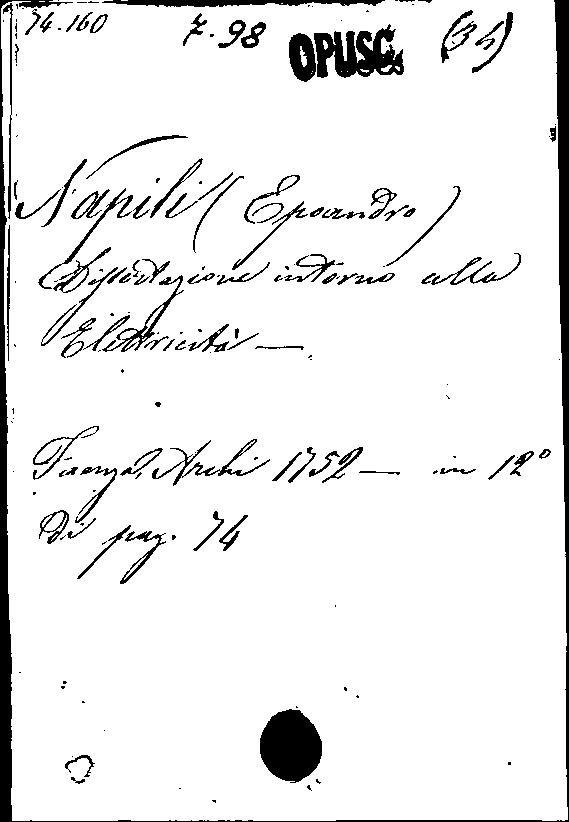 74.160 7.98 OPUSC. (35)
Napili (Epoandro)
Dissertazione intorno alla
Elettricità —
Faenza, Archi 1752 — in 12°
di pag. 74